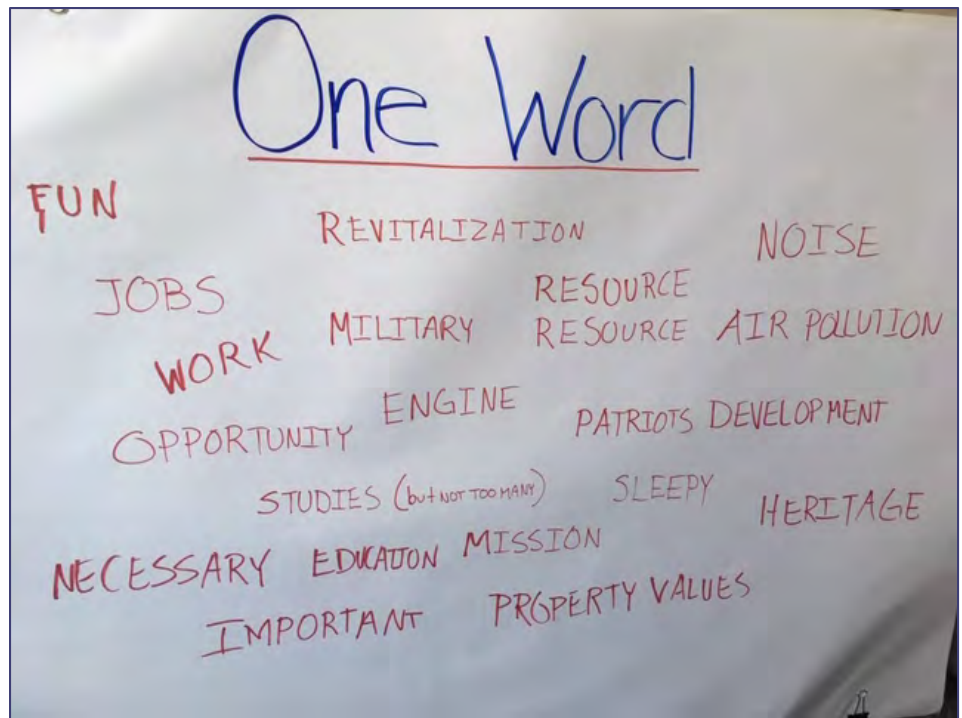 One Word
FUN
REVITALIZATION
NOISE
JOBS
RESOURCE
WORK
MILITARY
RESOURCE
AIR POLLUTION
OPPORTUNITY
ENGINE
PATRIOTS
DEVELOPMENT
STUDIES (but NOT TOO MANY)
SLEEPY
HERITAGE
NECESSARY
EDUCATION
MISSION
IMPORTANT
PROPERTY VALUES